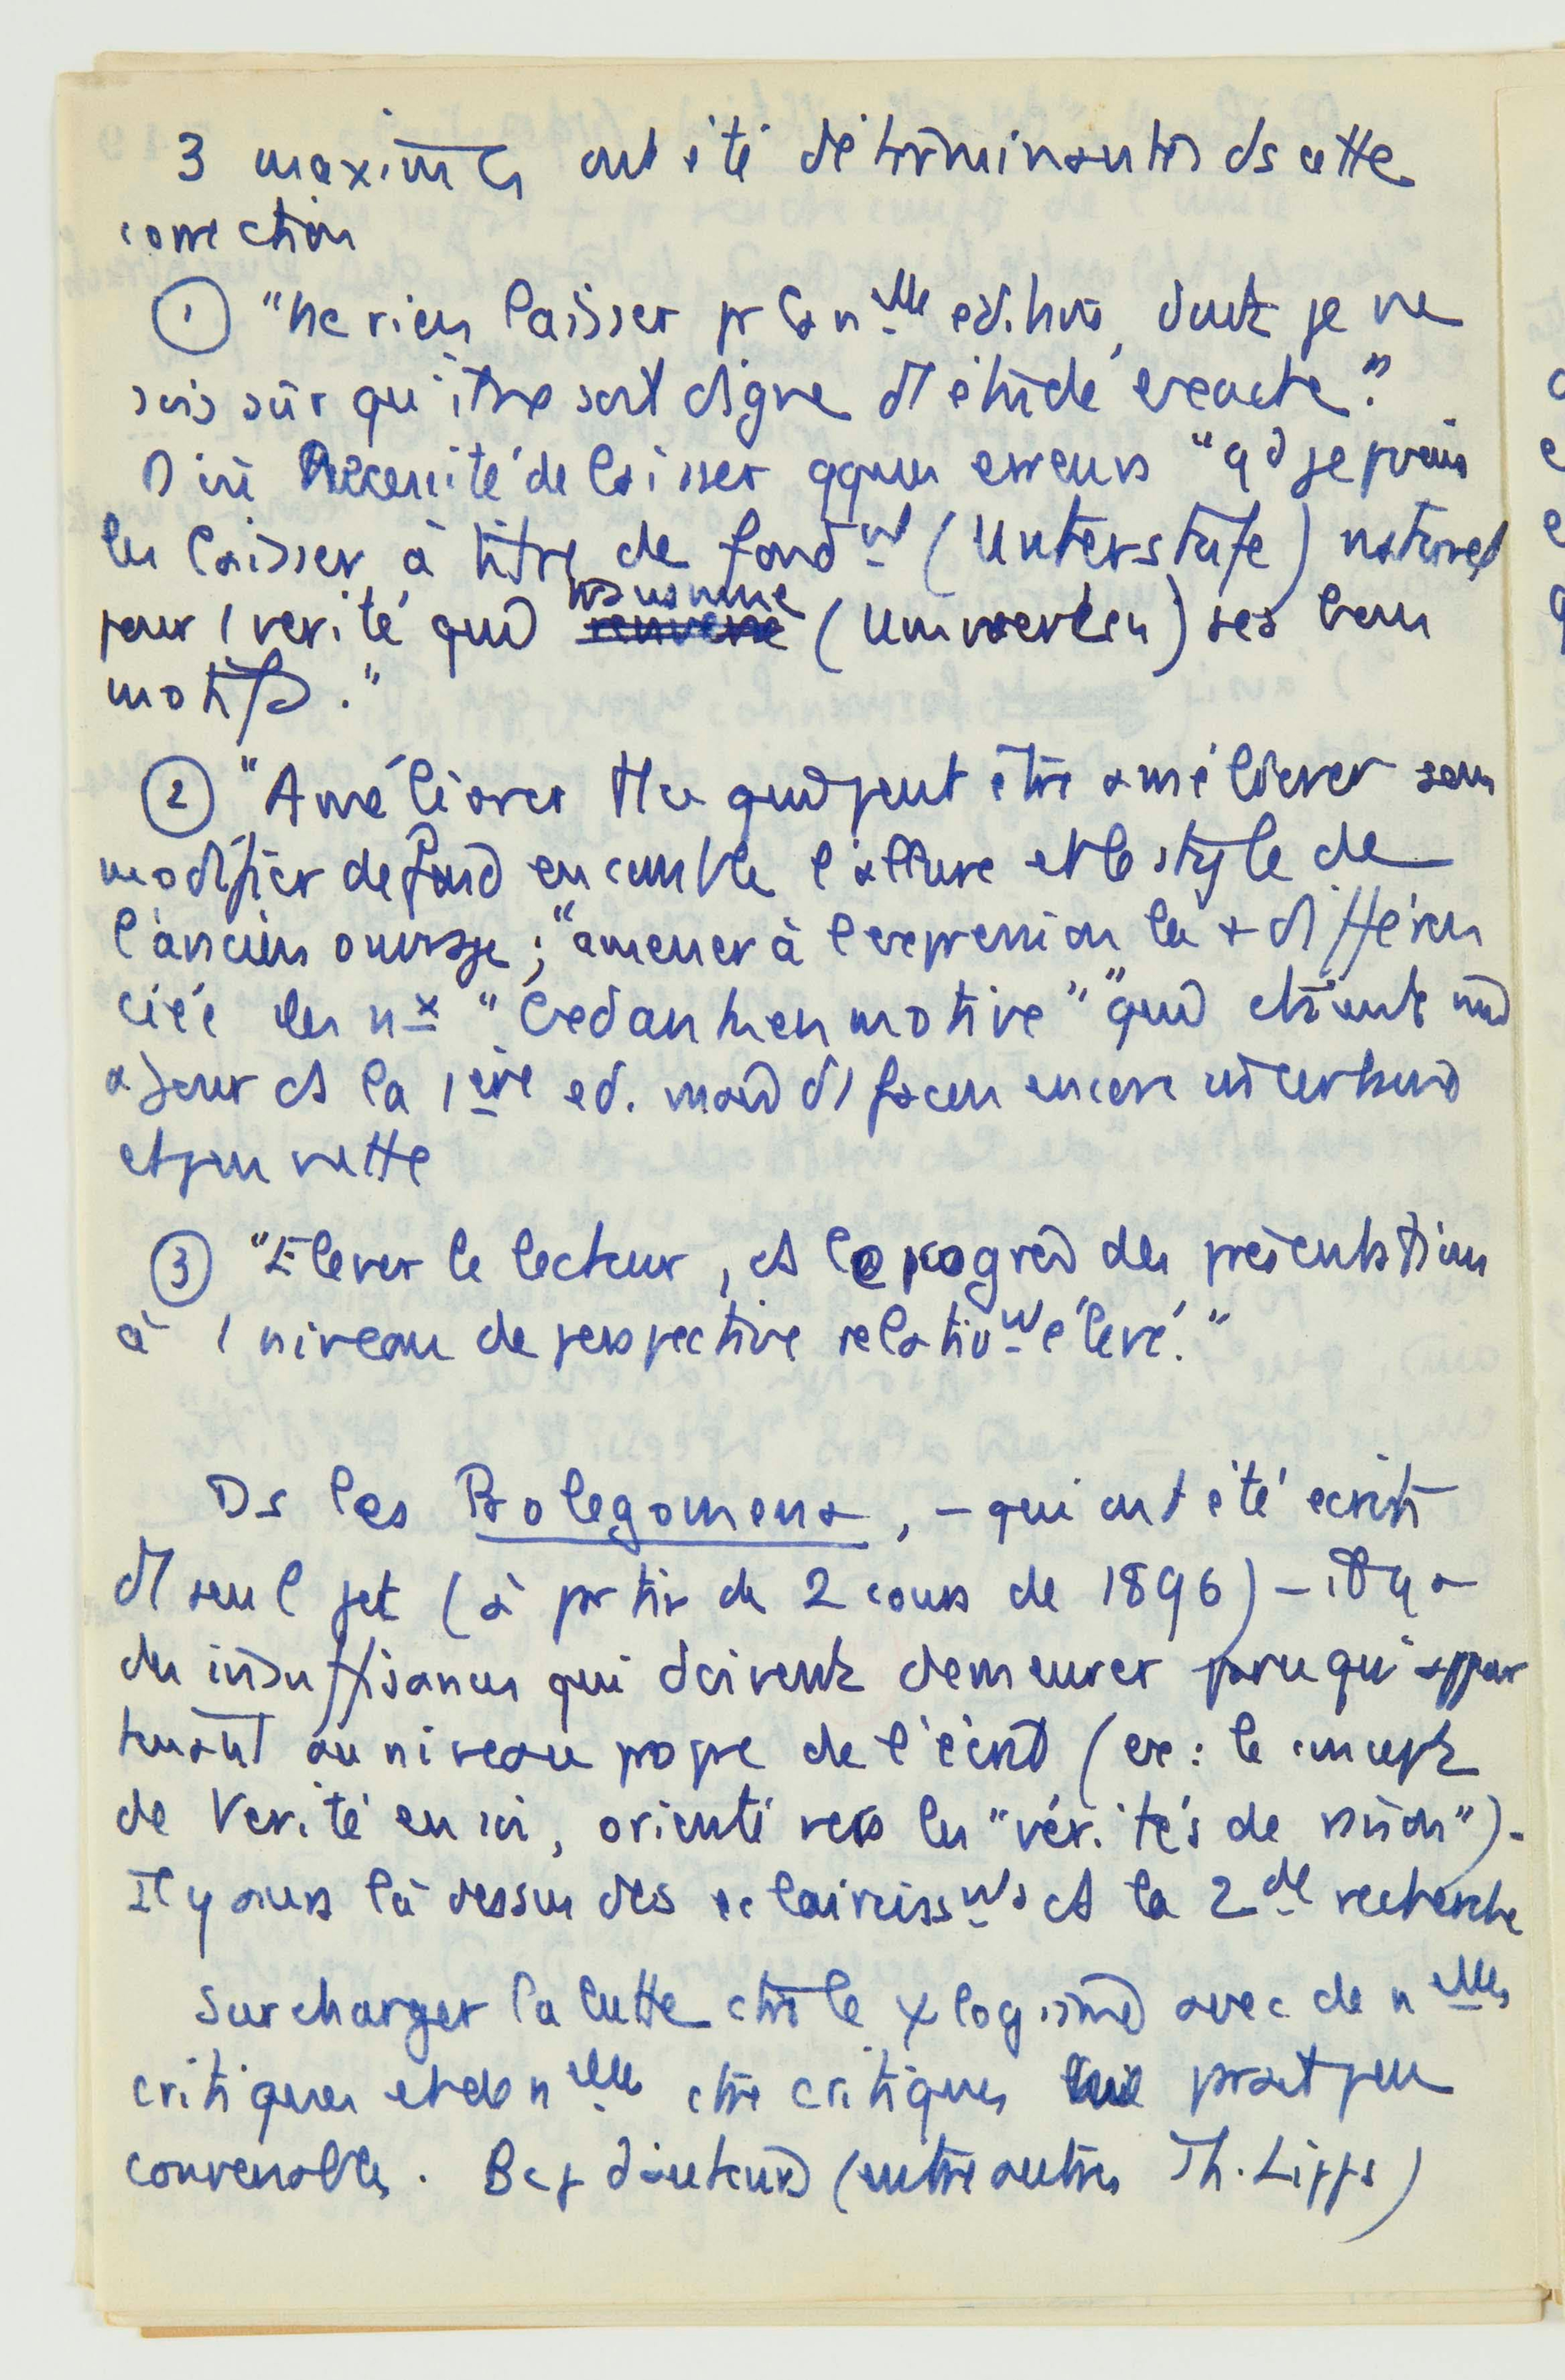 3 maximes ont été déterminantes ds cette
correction
① "Ne rien laisser pr la nlle édition, dont je ne
sois sûr qu'être soit digne d'1 étude exacte."
D'où Nécessité de laisser qques erreurs "qd je pouvais
les laisser à titre de fondt (Unterstufe) naturel
pour 1 vérité qui (Umwerten) ses bons
motifs."
② "Améliorer tt ce qui peut être améliorer sans
modifier de fond en comble l'allure et le style de
l'ancien ouvrage ; "amener à l'expression la + différen
ciée les nx "Gedankenmotive" qui étaient mis
à jour ds la 1ère ed. mais d'1 façon encore incertaine
et peu nette
③ "Elever le lecteur, ds le progrès des présentations
à 1 niveau de perspective relativt élevé."
Ds les Prolegomena, – qui ont été écrits
d'1 seul jet (à partir de 2 cours de 1896) – il y a
des insuffisances qui doivent demeurer parce qu'appar
tenant au niveau propre de l'écrit (ex : le concept
de Vérité en soi, orienté vers les "vérités de raison").
Il y aura là dessus des éclaircissts ds la 2de recherche
Surcharger la lutte ctre le ψlogisme avec de nlles
critiques et de nlles ctre critiques parait peu
convenable. Bcp d'auteurs (entre autres Th. Lipps)